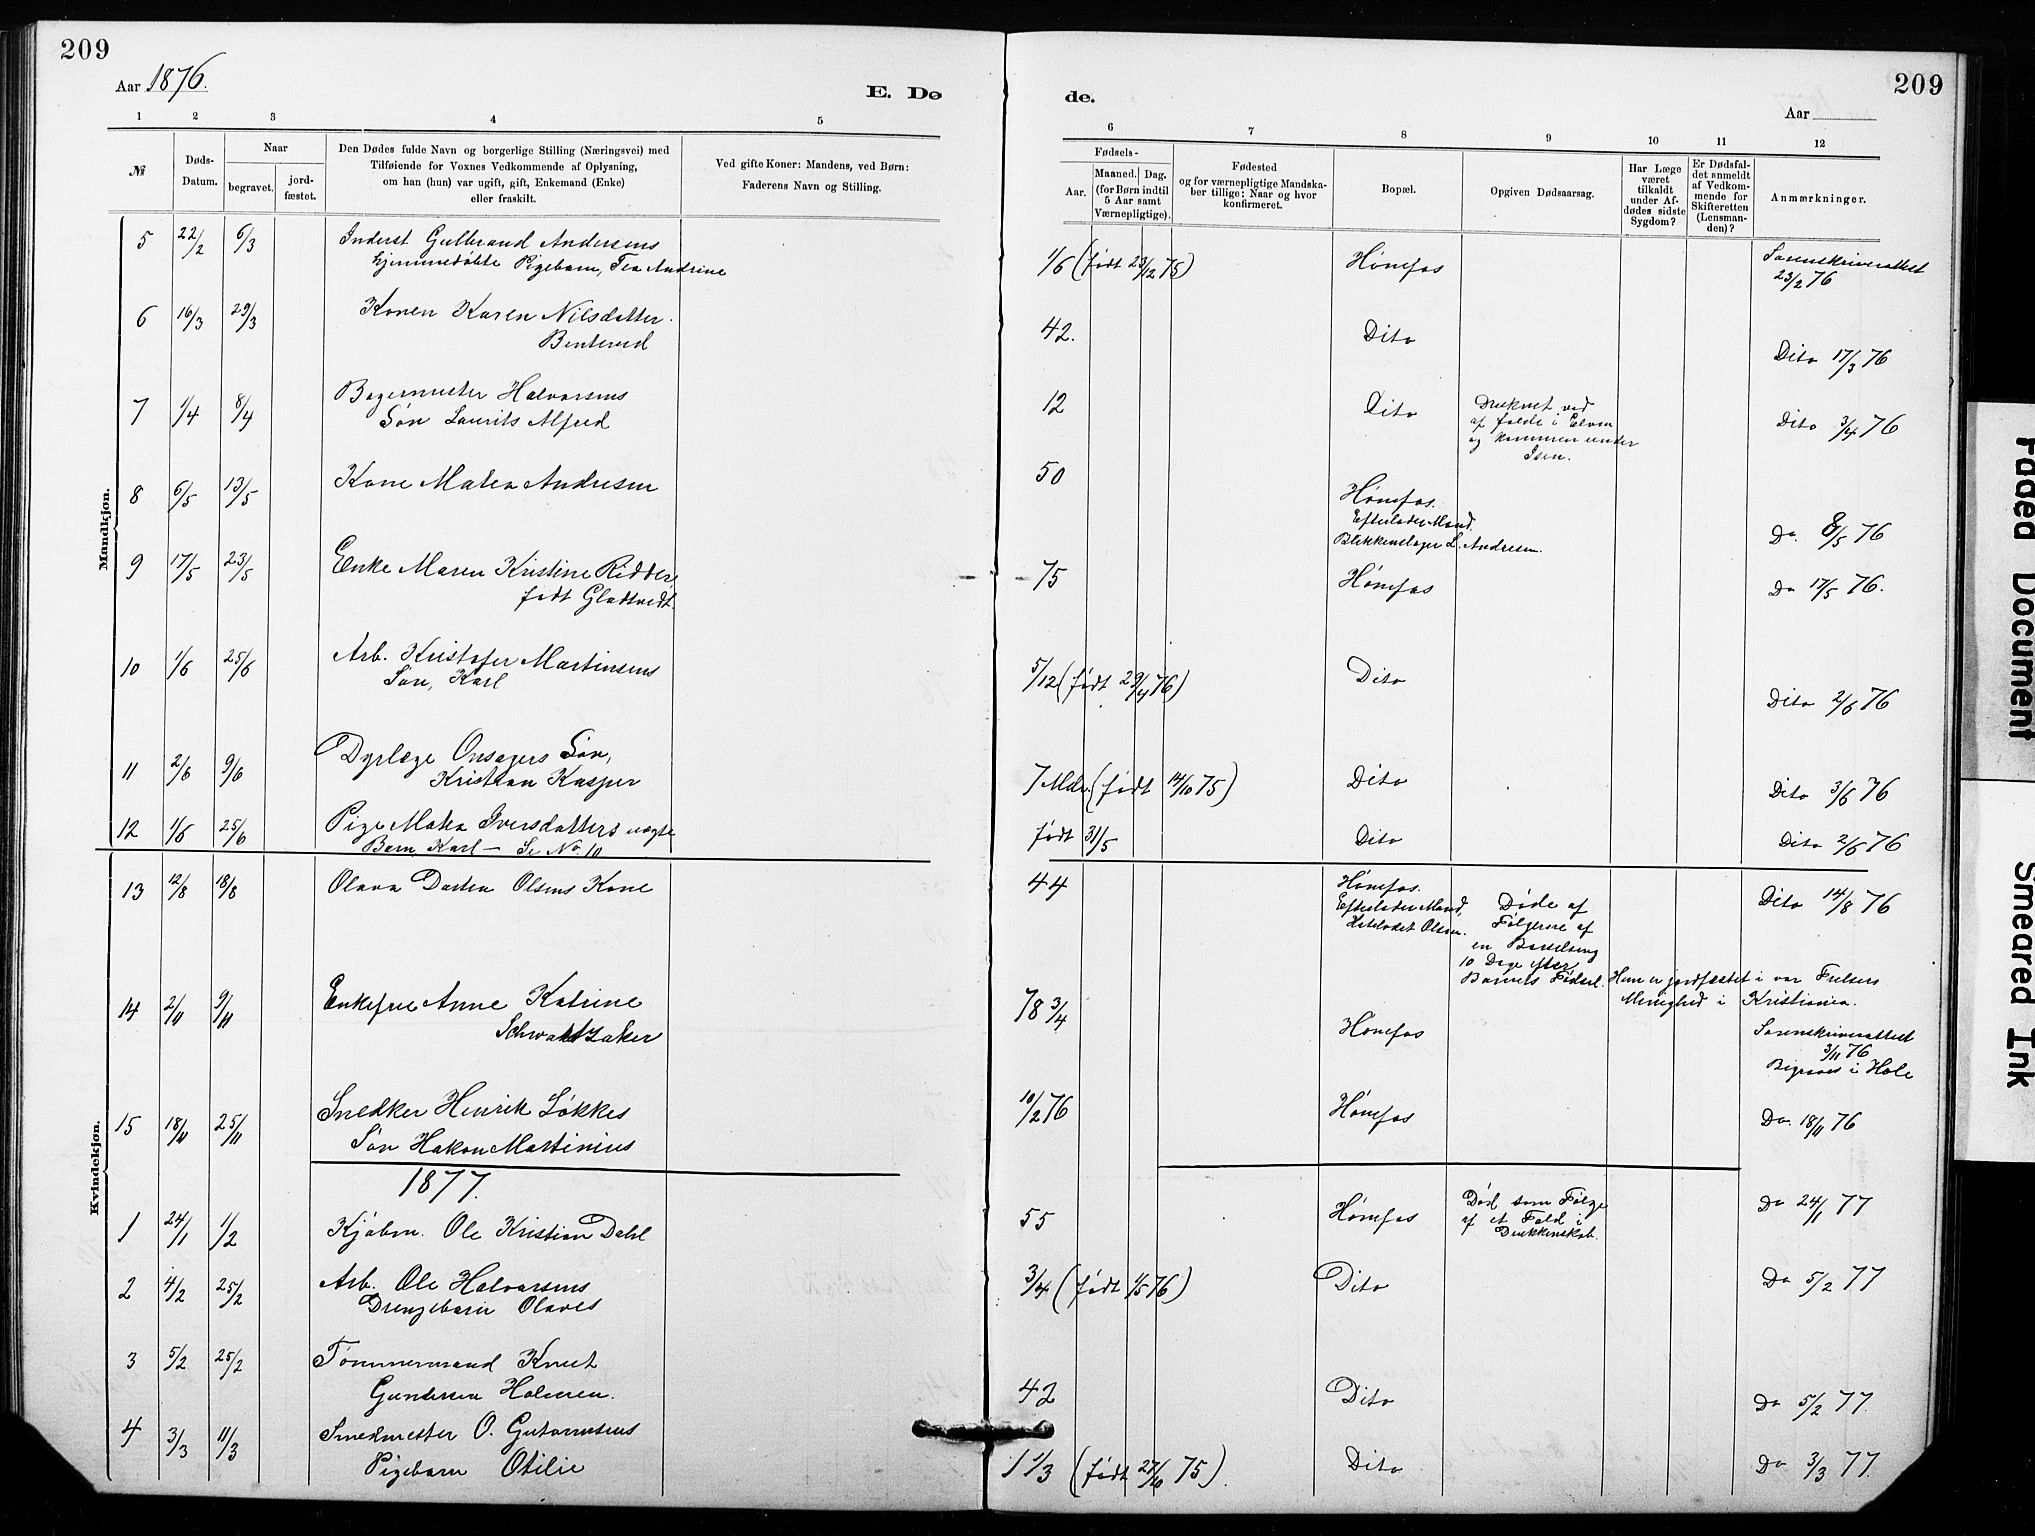 209
209
Aar 1876.
E. Dø
de.
Aar
1 2 3 4 5
6 7 8 9 10 11 12
№
Døds-
Datum.
Naar
begravet.
jord-
fæstet.
Den Dødes fulde Navn og borgerlige Stilling (Næringsvei) med
Tilføiende for Voxnes Vedkommende af Oplysning,
om han (hun) var ugift, gift, Enkemand (Enke)
eller fraskilt.
Ved gifte Koner: Mandens, ved Børn:
Faderens Navn og Stilling.
Fødsels-
Aar.
Maaned. Dag.
(for Børn indtil
5 Aar samt
Værnepligtige).
Fødested
og for værnepligtige Mandska-
ber tillige: Naar og hvor
konfirmeret.
Bopæl.
Opgiven Dødsaarsag.
Har Læge
været
tilkaldt
under Af-
dødes sidste
Sygdom?
Er Dødsfal-
det anmeldt
af Vedkom-
mende for
Skifteretten
(Lensman-
den)?
Anmærkninger.
Mandkjøn.
5 22/2 6/3 Inderst Gulbrand Andersens
hjemmedøbte Pigebarn, Tea Andrine
1/6 (født 23/12 75) Hønefos Sorenskriverattest
23/2 76
6 16/3 29/3 Konen Karen Nilsdatter
Benterud
42. Dito Dito 17/3 76
7 1/4 8/4 Bagermester Halvorsens
Søn Laurits Alfred
12 Dito Druknet ved
af falde i Elven
og kommen under
Isen.
Dito 3/4 76
8 6/5 13/5 Kone Matea Andresen
50 Hønefos.
Efterlader Mand,
Blikkenslager L. Andresen.
Do. 8/5 76
9 17/5 23/5 Enke Maren Kristine Ridder,
født Gladtvedt
75 Hønefos Do 17/5 76.
10 1/6 25/6 Arb. Kristofer Martinsens
Søn, Karl
5/12 (født 29/4 76) Dito Dito 2/6 76
11 2/6 9/6 Dyrlæge Onsagers Søn,
Kristian Kasper
7 Mdr. (født 14/10 75) Dito Dito 3/6 76
12 1/6 25/6 Pige Matea Iversdatters uægte
Barn, Karl — Se No. 10
født 31/5 Dito Dito 2/6 76
13 12/8 18/8 Olava Dortea Olsens Kone
44 Hønefos.
Efterlader Mand,
Olsen.
Døde af
Følgerne af
en Barselseng
10 Dage efter
Barnets Fødsel.
Dito 14/8 76
Hun er jordfæstet i vor Frelsers
Menighed i Kristiania.
14 2/11 9/11 Enkefrue Anne Katrine
78 3/4 Hønefos Sorenskriverattest
3/11 76
Begraves i Hole
Kvindekjøn.
15 18/11 25/11 Snedker Henrik Løkkes
Søn Hakon Martinius
10/2 76 Hønefos Do. 18/11 76
1877.
1 24/1 1/2 Kjøbm. Ole Kristian Dahl
55 Hønefos Død som Følge
af et Fald i
Drukkenskab.
Do 24/1 77
2 4/2 25/2 Arb. Ole Halvorsens
Drengebarn Olaves
3/4 (født 1/5 76) Dito Do 5/2 77
3 5/2 25/2 Tømmermand Knut
Gundersen Holmen.
42 Dito Do 5/2 77
4 3/3 11/3 Smedmester O. Gutormsens
Pigebarn Otilie
1 1/3 (født 27/10 75). Dito Do 3/3 77
Faded Document
Smeared Ink